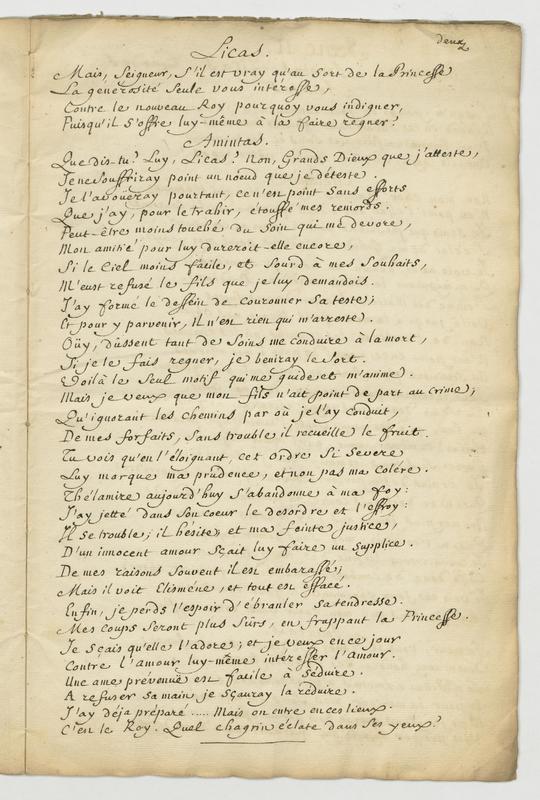 deux
Licas.
Mais, Seigneur, S'il est vray qu'au Sort de la Princesse
La generosité Seule vous intéresse,
Contre le nouveau Roy pourquoy vous indigner,
Puisqu'il S'offre luy-même à la faire regner?
Amintas.
Que dis-tu? Luy, Licas? Non, Grands Dieux que j'atteste,
Je ne Souffriray point un nœud que je déteste.
Je l'avoueray pourtant, ce n'est point Sans efforts
Que j'ay, pour le trahir, étouffé mes remords.
Peut-être moins touché du Soin qui me dévore,
Mon amitié pour luy dureroit-elle encore,
Si le Ciel moins facile, et Sourd à mes Souhaits,
M'eust refusé le fils que je luy demandois.
J'ay formé le dessein de couronner Sa teste;
Et pour y parvenir, Il n'est rien qui m'arreste.
Oüy, dussent tant de Soins me conduire à la mort,
Si je le fais regner, je beniray le Sort.
Voilà le Seul motif qui me guide et m'anime.
Mais je veux que mon fils n'ait point de part au crime;
Qu'ignorant les chemins par où je l'ay conduit,
De mes forfaits, Sans trouble il recueille le fruit.
Tu vois qu'en l'éloignant, cet Ordre Si Severe
Luy marque ma prudence, et non pas ma Colére.
Thélamire aujourd'huy S'abandonne à ma foy:
J'ay jetté dans Son coeur le desordre et l'effroy:
Il Se trouble; il hésite; et ma feinte justice,
D'un innocent amour Sçait luy faire un Supplice.
De mes raisons Souvent il est embarassé;
Mais il voit Elisméne, et tout est effacé.
Enfin, je perds l'espoir d'ébranler Sa tendresse.
Mes coups Seront plus Sûrs, en frappant la Princesse.
Je Sçais qu'elle l'adore; et je veux en ce jour
Contre l'amour luy-même intéresser l'Amour.
Une ame prévenuë est facile à Séduire.
A refuser Sa main je Sçauray la réduire.
J'ay déja préparé ..... Mais on entre en ces lieux.
C'en le Roy. Quel chagrin éclate dans Ses yeux?